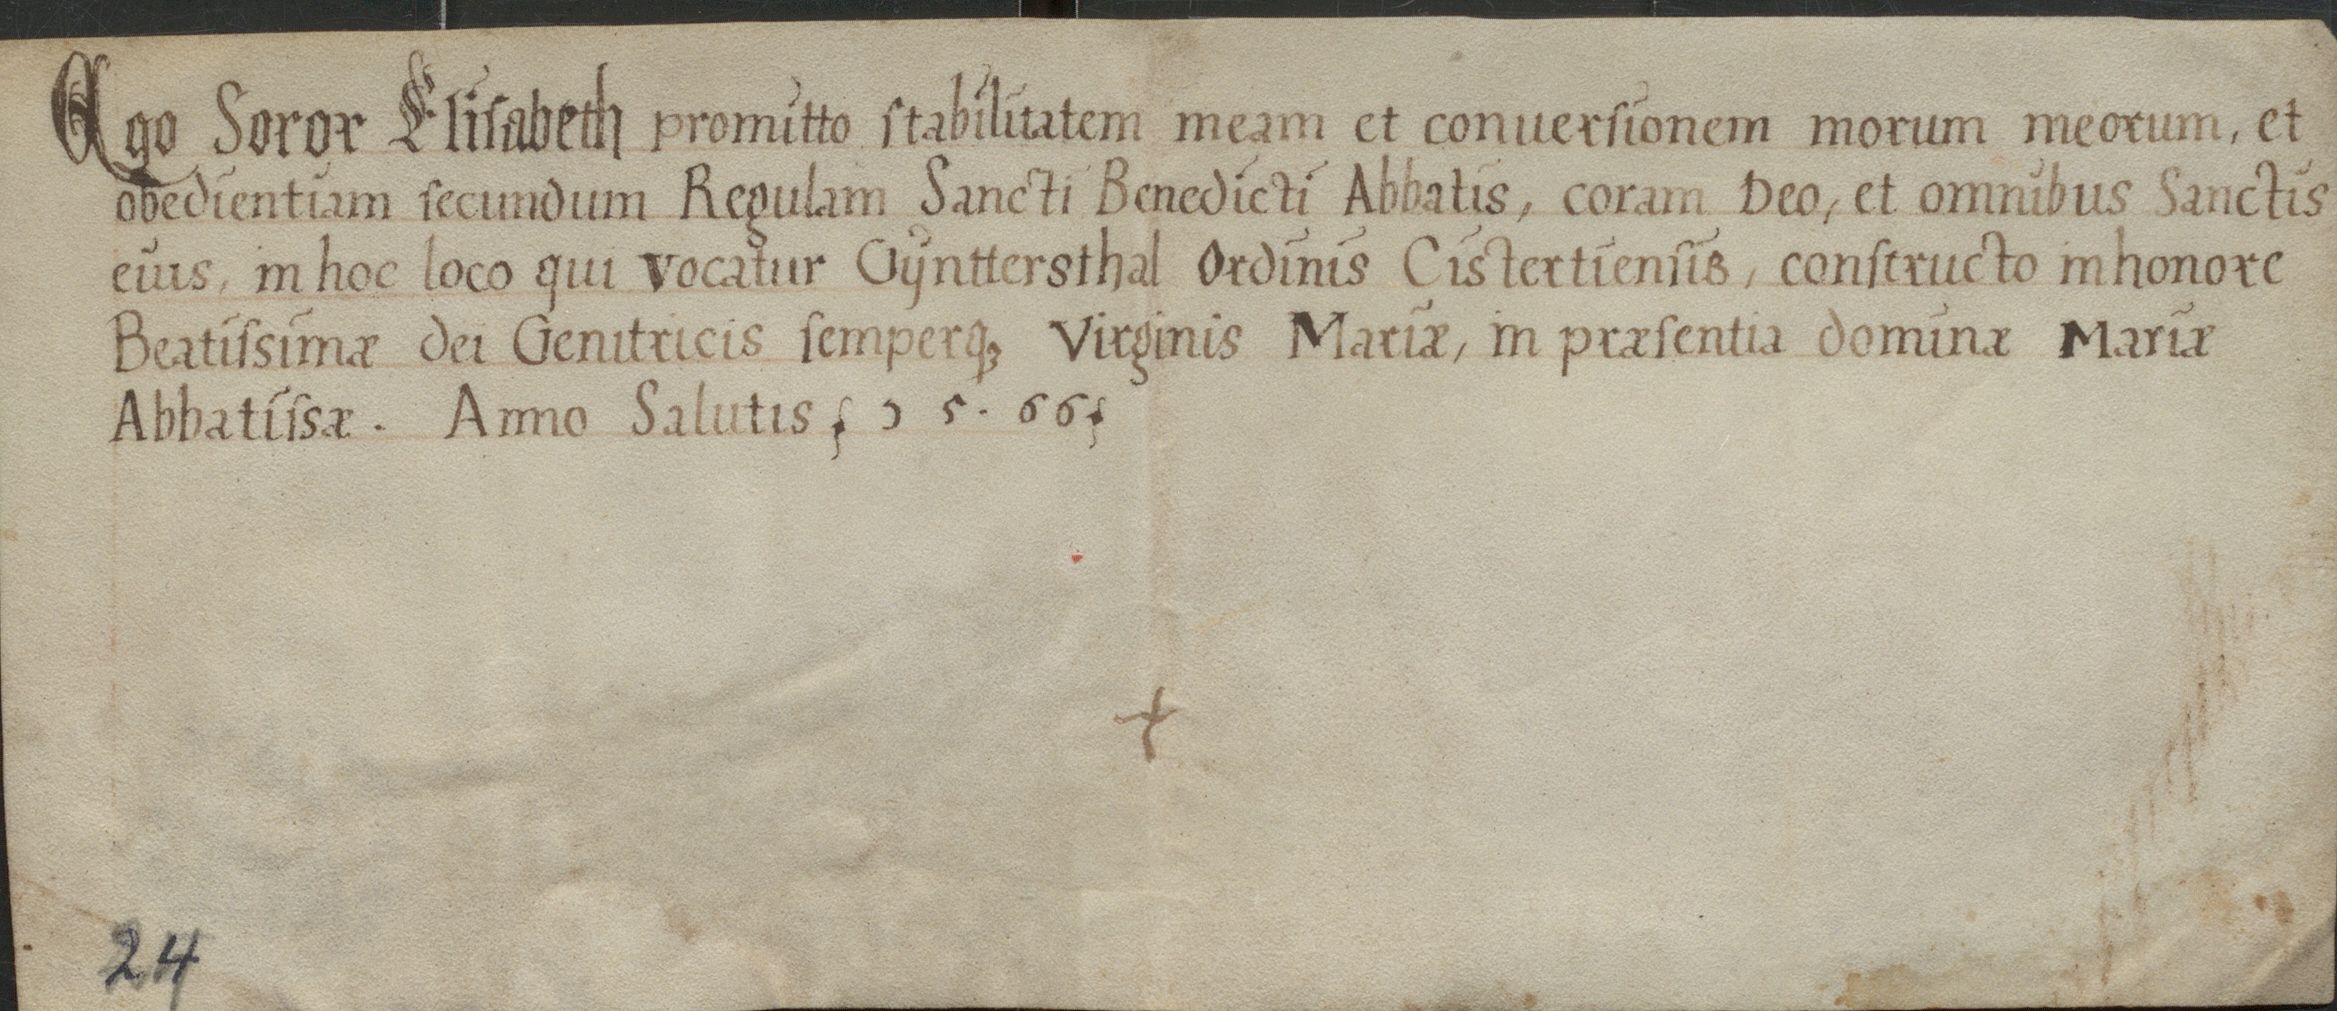 Ego Soror Elisabeth promitto stabilitatem meam et conuersionem morum meorum, et
obedientiam secundum Regulam Sancti Benedicti Abbatis, coram Deo, et omnibus Sanctis
eius, in hoc loco qui vocatur Gÿnttersthal Ordinis Cistertiensis, constructo in honore
Beatissimæ dei Genitricis semperq₃ Virginis Mariæ, in præsentia dominæ Mariæ
Abbatissæ. Anno Salutis 15.66
24